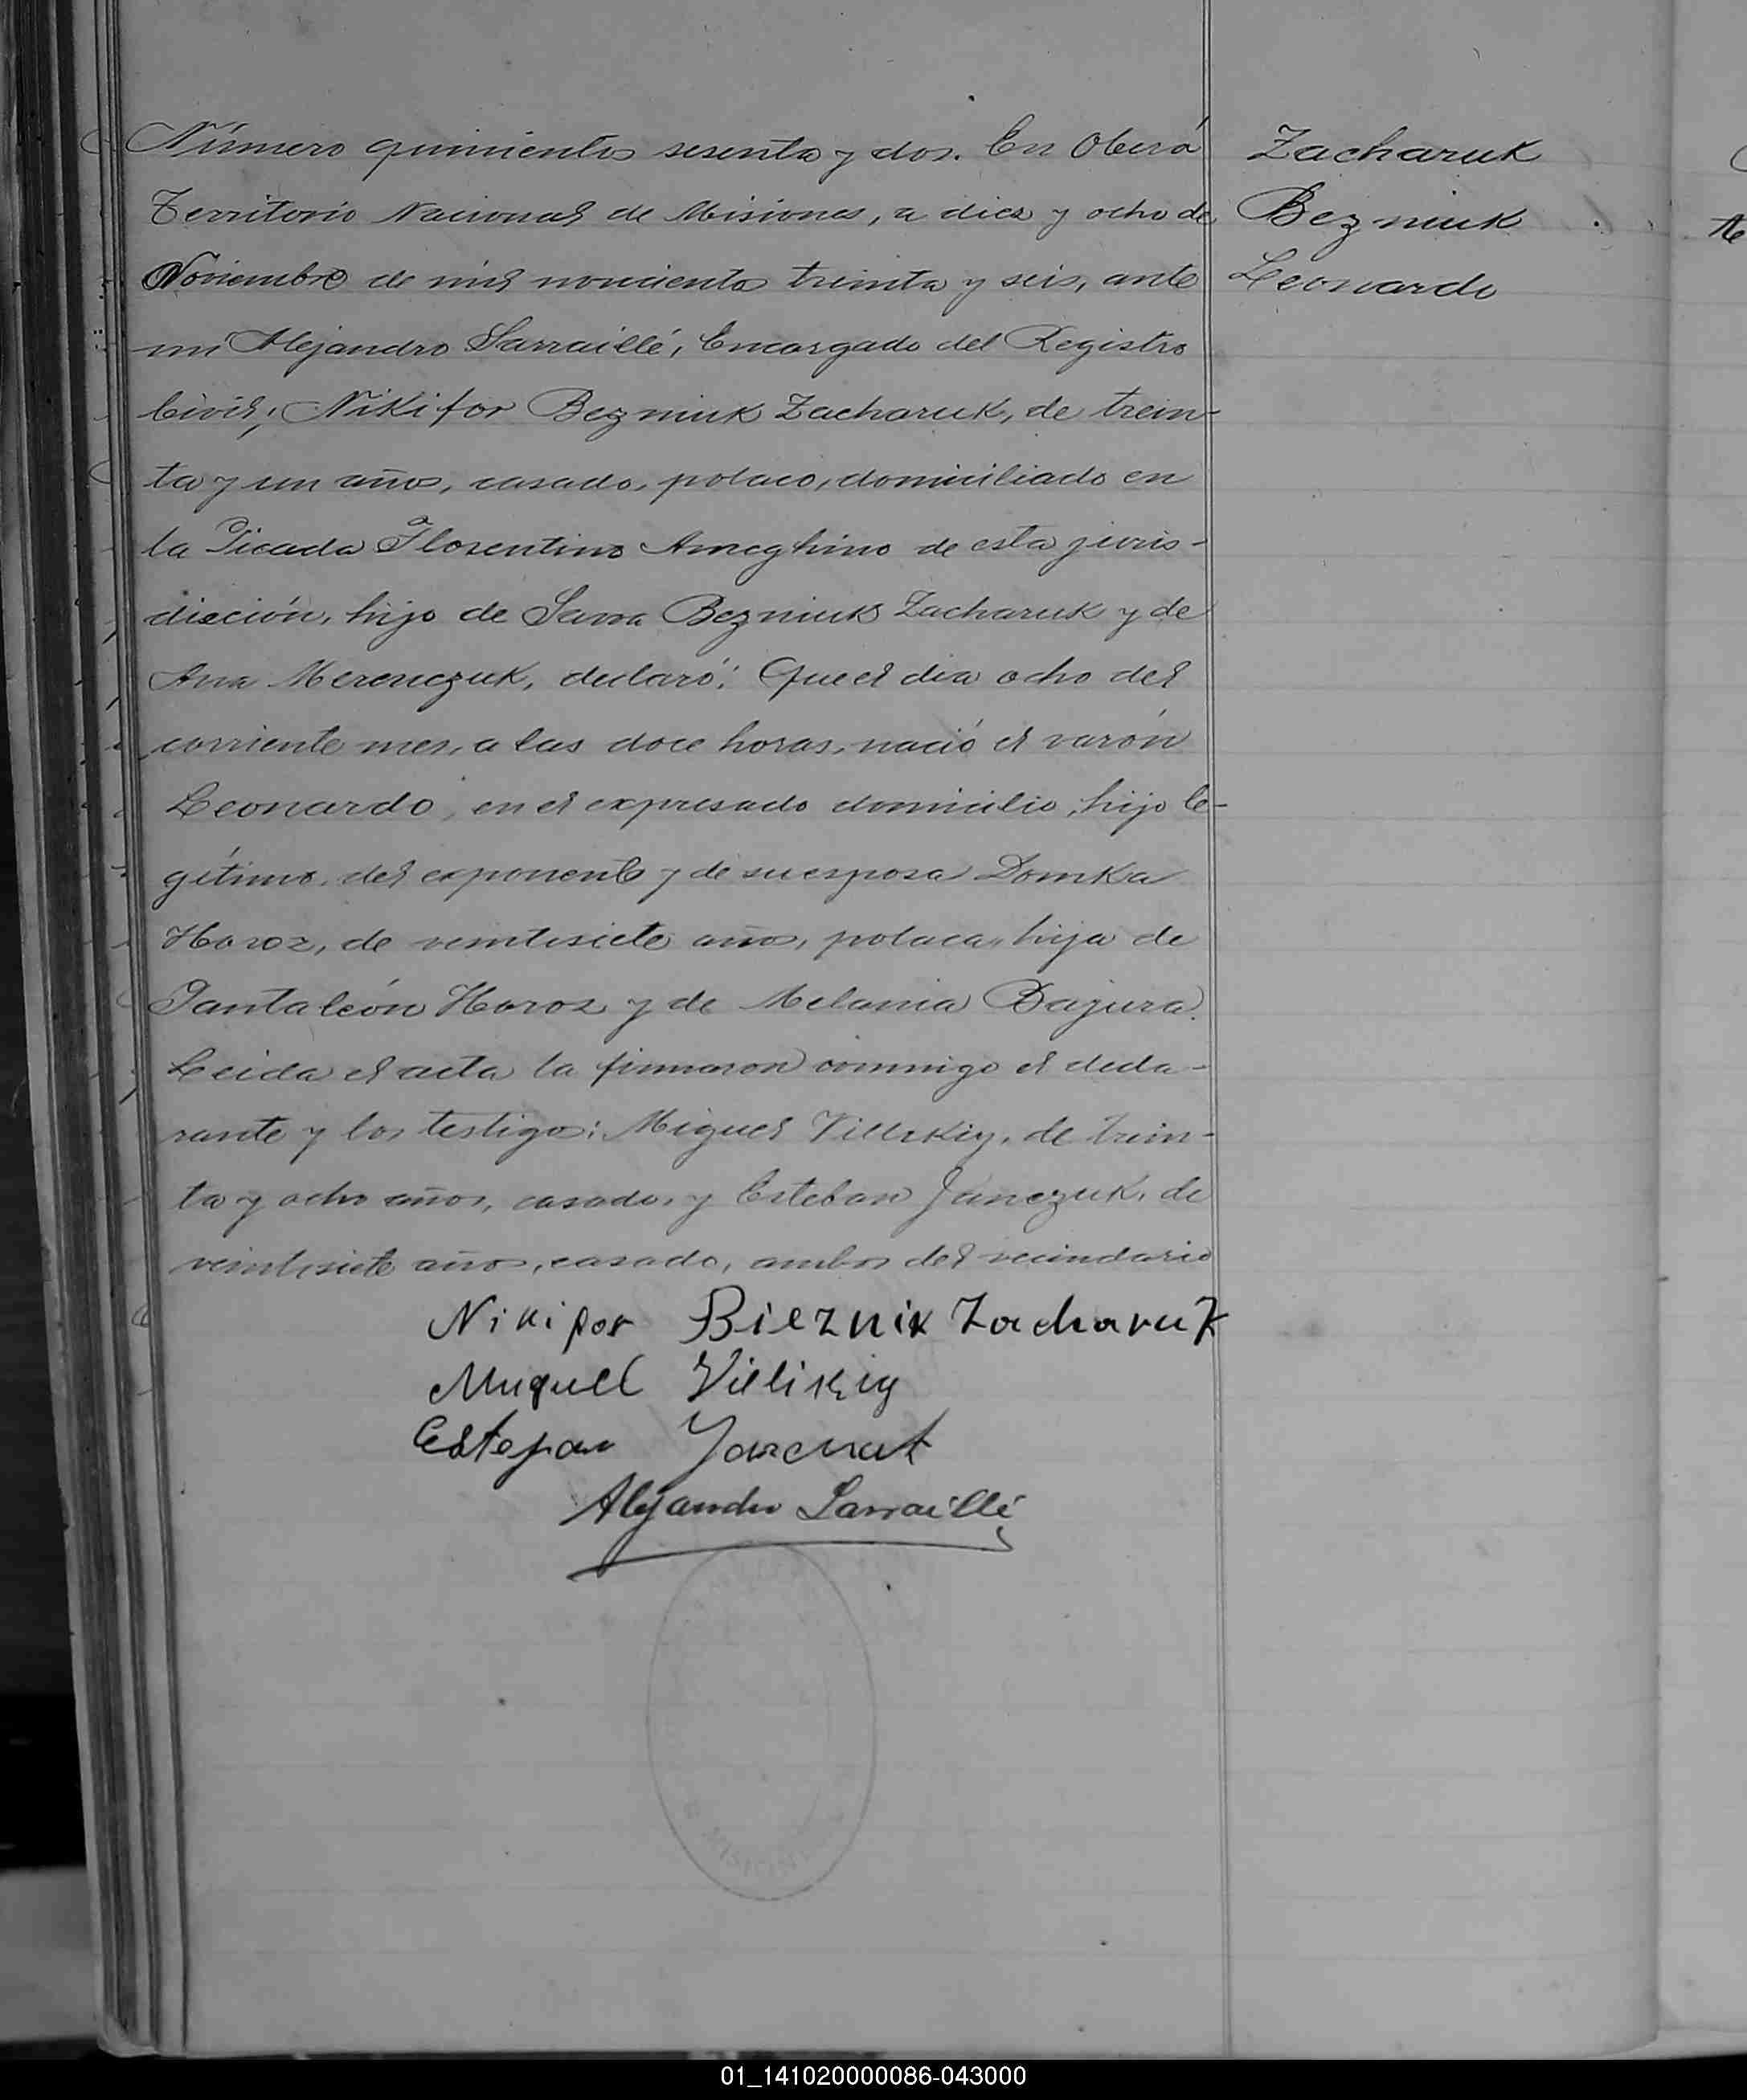 Número quinientos sesenta y dos. En Oberá
Territorio Nacional de Misiones, a diez y ocho de
Noviembre de mil novecientos treinta y seis, ante
mi Alejandro Sarraillé, Encargado del Registro
Civil; Nikifor Bezniuk Zacharuk, de trein-
ta y un años, casado, polaco, domiciliado en
la Picada Florentino Ameghino de esta juris-
dicción, hijo de Sawa Bezniuk Zacharuk y de
Ana Merenczuk, declaró: Que el dia ocho del
corriente mes, a las doce horas, nació el varón
Leonardo, en el expresado domicilio, hijo le-
gítimo del exponente y de su esposa Domka
Horoz, de veintisiete años, polaca, hija de
Pantaleón Horoz y de Melania Bajura.
Leida el acta la firmaron conmigo el decla-
rante y los testigos: Miguel Villskiy, de trein-
ta y ocho años, casado, y Esteban Janczuk, de
veintisiete años, casado, ambos del vecindario
Nikifor Bieznik Zacharuk
Miguell Vieliskiy
Estepan
Alejandro Sarraillé
Zacharuk
Bezniuk
Leonardo
MISIONES
01_141020000086-043000